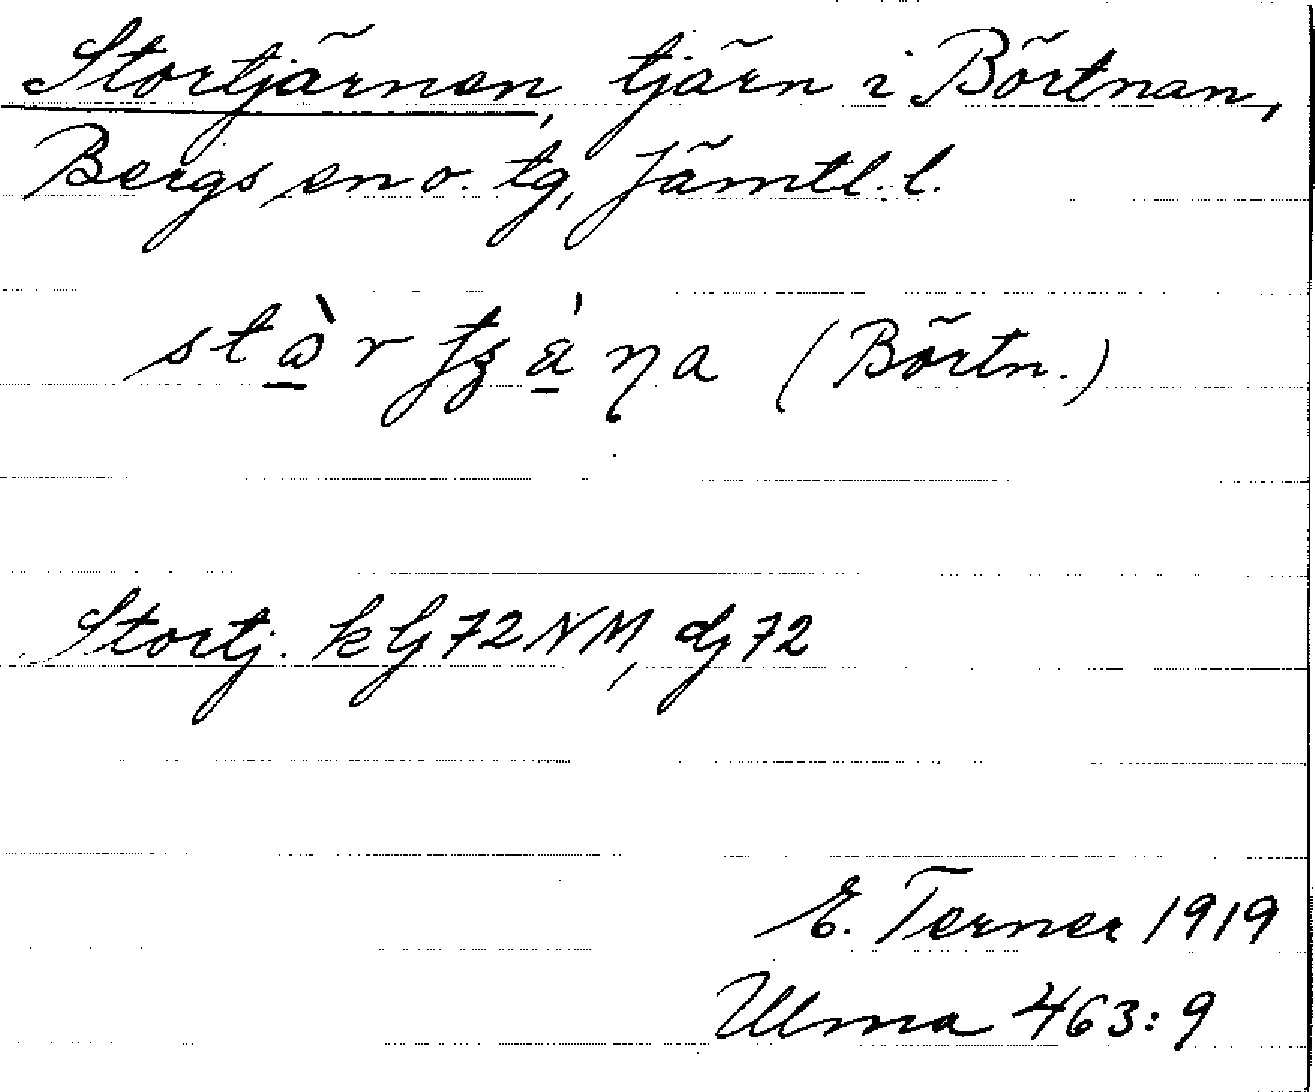 Stortjärnen, tjärn i Börtnan,
Bergs sn o. tg, Jämtl. l.
(Börtn.)
Stortj. k Lj 72 NM, dj 72
E. Terner 1919
Ulma 463:9